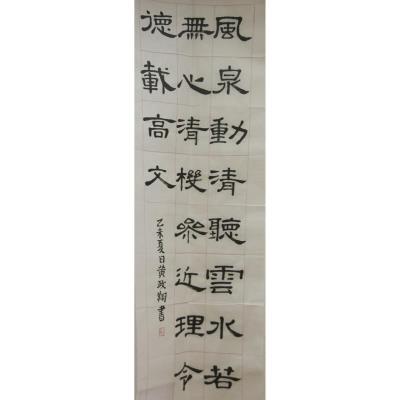 風泉動清聽雲水若
無心清機参近理令
德載高文
乙未夏日黄政翔書